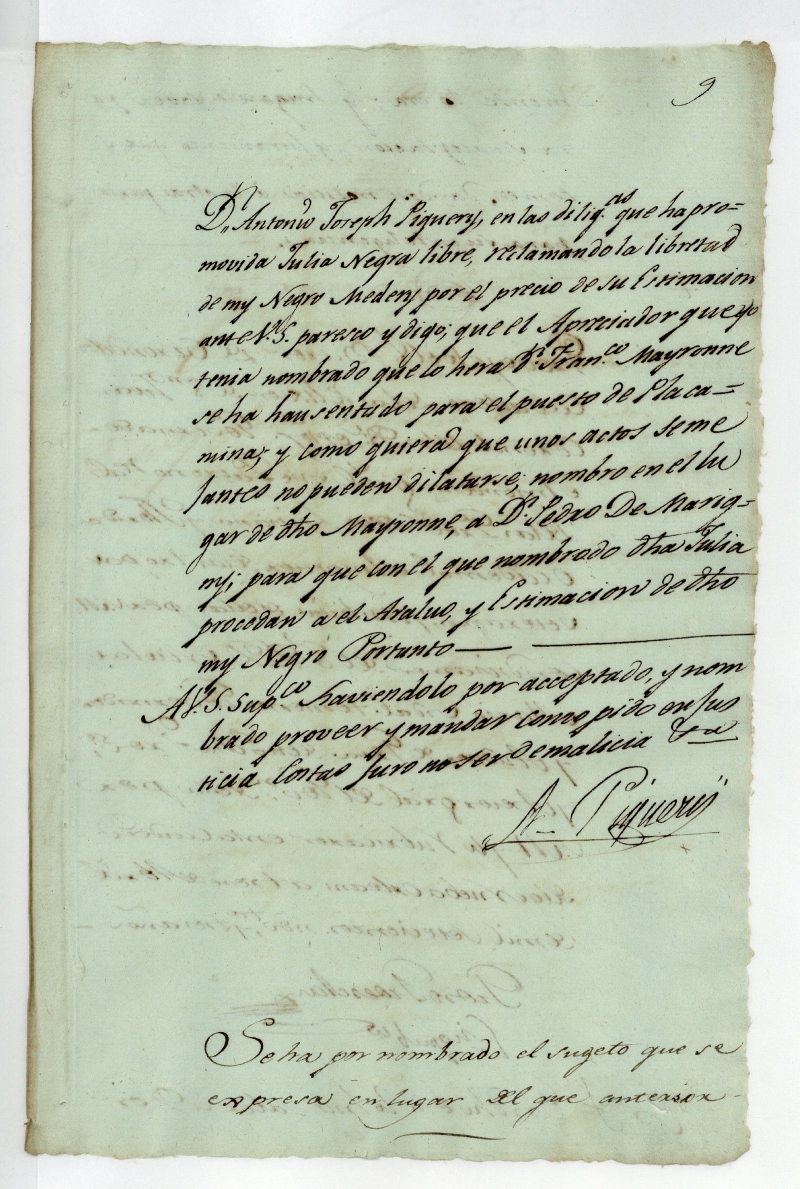 9
Dn. Antonio Joseph Piquery, en las diligas. que ha pro-
movida Julia Negra libre, reclamando la libretad
de my Negro Medery por el precio de su Estimacion
ante V.S. paresco y digo; que el Apreciador que yo
tenia nombrado que lo hera Dn. Franco. Mayronne
se ha hausentado para el puesto de Placa-
mina; y como quiera que unos actos seme
jantes no pueden dilatarse; nombro en el lu
gar de dho Mayronne, a Dn. Pedro De Marig-
ny; para que con el que nombrado dha Julia
procedan a el Avaluo, y Estimacion de dho
my Negro Portanto
A V.S. supco. haviendolo por acceptado, y nom
brado proveer y mandar como pido en Jus
ticia Costas Juro no ser de malicia &a
An Piquery
Se ha por nombrado el sugeto que se
expresa en lugar del que anterior-